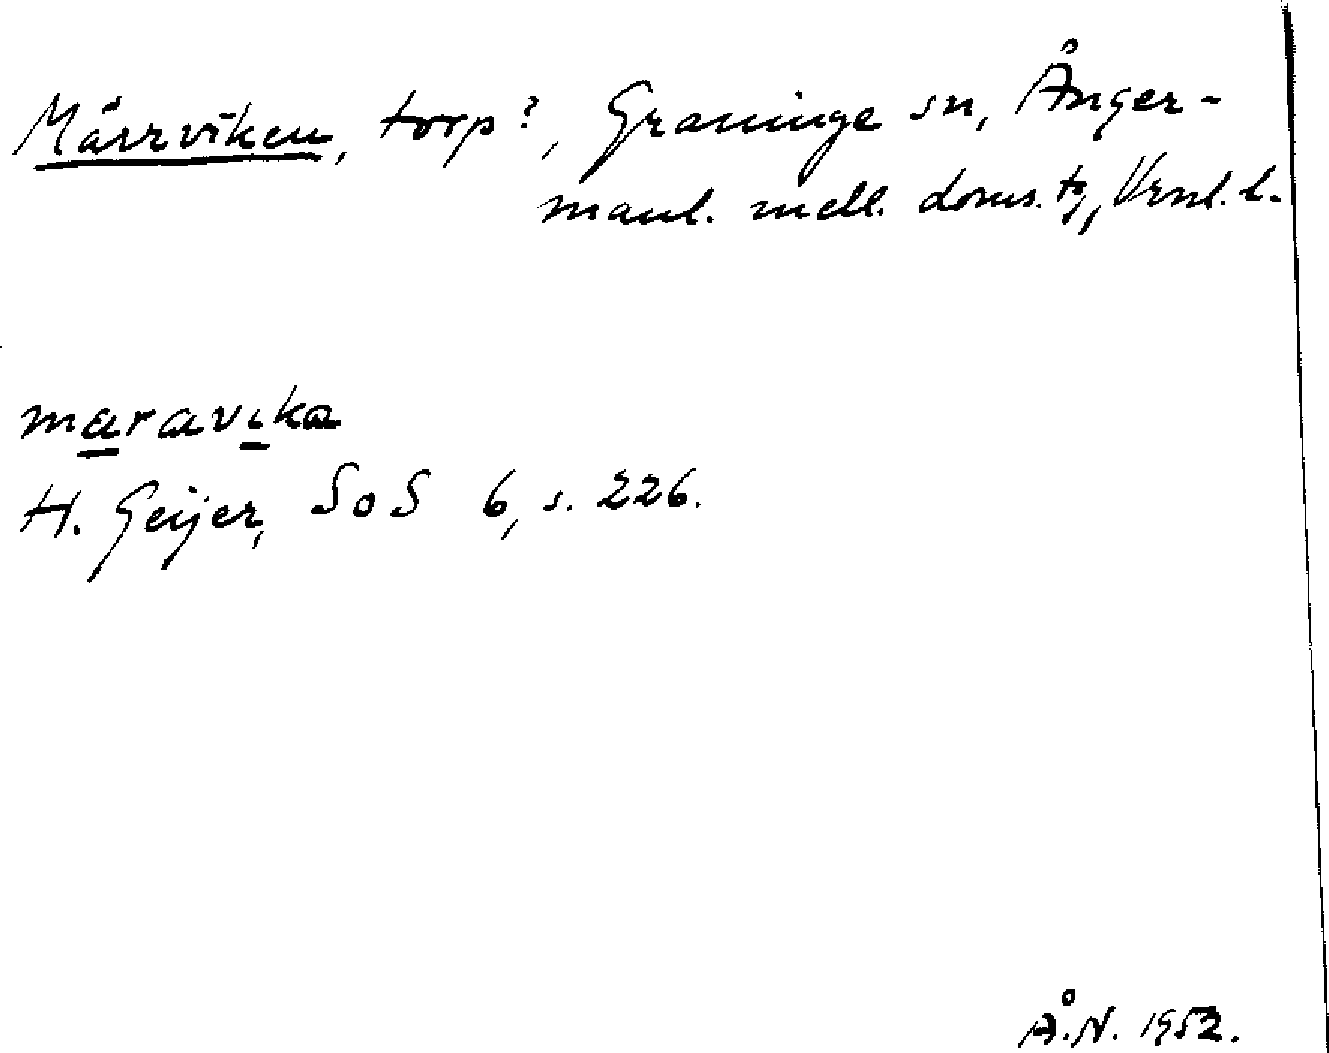 Märrviken, torp?, Graninge sn, Ånger-
manl. mell. doms. tg, Vrnl. l.
maravika
H. Geijer, SoS 6, s. 226.
Å.N. 1952.